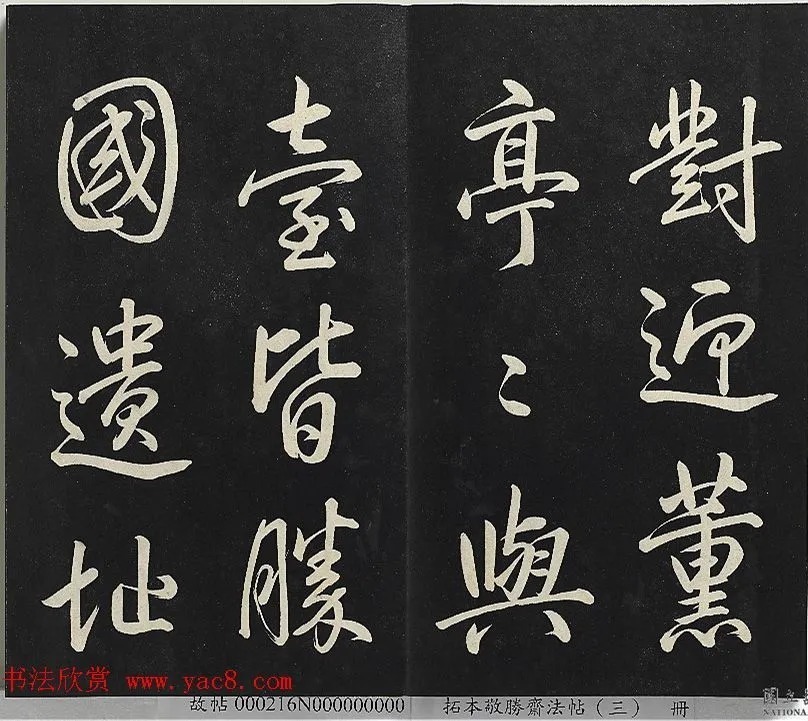 對迎薰
亭〻與
臺皆勝
國遺址
书法欣赏 www.yac8.com
故帖 000216N000000000 拓本敬勝齋法帖（三） 冊
國立
NATIONA